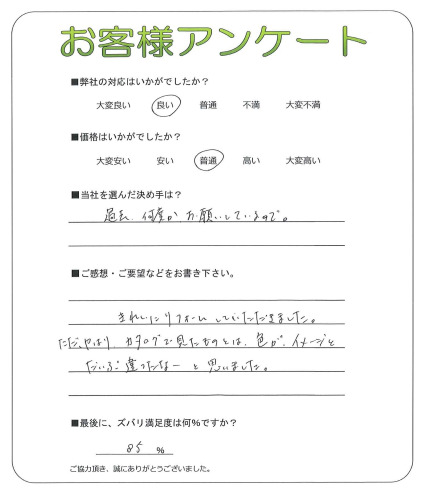 お客様アンケート
■弊社の対応はいかがでしたか？
大変良い 良い 普通 不満 大変不満
■価格はいかがでしたか？
大変安い 安い 普通 高い 大変高い
■当社を選んだ決め手は？
過去、何度かお願いしているので。
■ご感想・ご要望などをお書き下さい。
きれいにリフォームしていただきました。
ただ、やはり、カタログで見たものとは、色が、イメージと
だいぶ違ったなーと思いました。
■最後に、ズバリ満足度は何％ですか？
85 %
ご協力頂き、誠にありがとうございました。